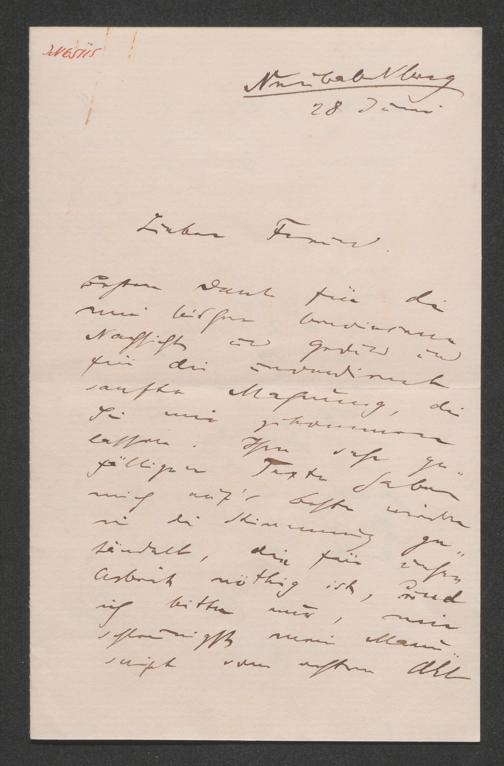 28 Juni
Lieber Freund.
Besten Dank für die
mir bisher bewiesene
Nachsicht und Geduld und
für die
sanfte Mahnung, die
Sie mir zukommen
lassen. Ihre sehr ge-
fälligen Texte haben
mich auf's beste wieder
in die Stimmung ge-
die für unsere
Arbeit nöthig ist, und
ich bitte nur, mir
schleunigst mein Manu-
script vom ersten Akt